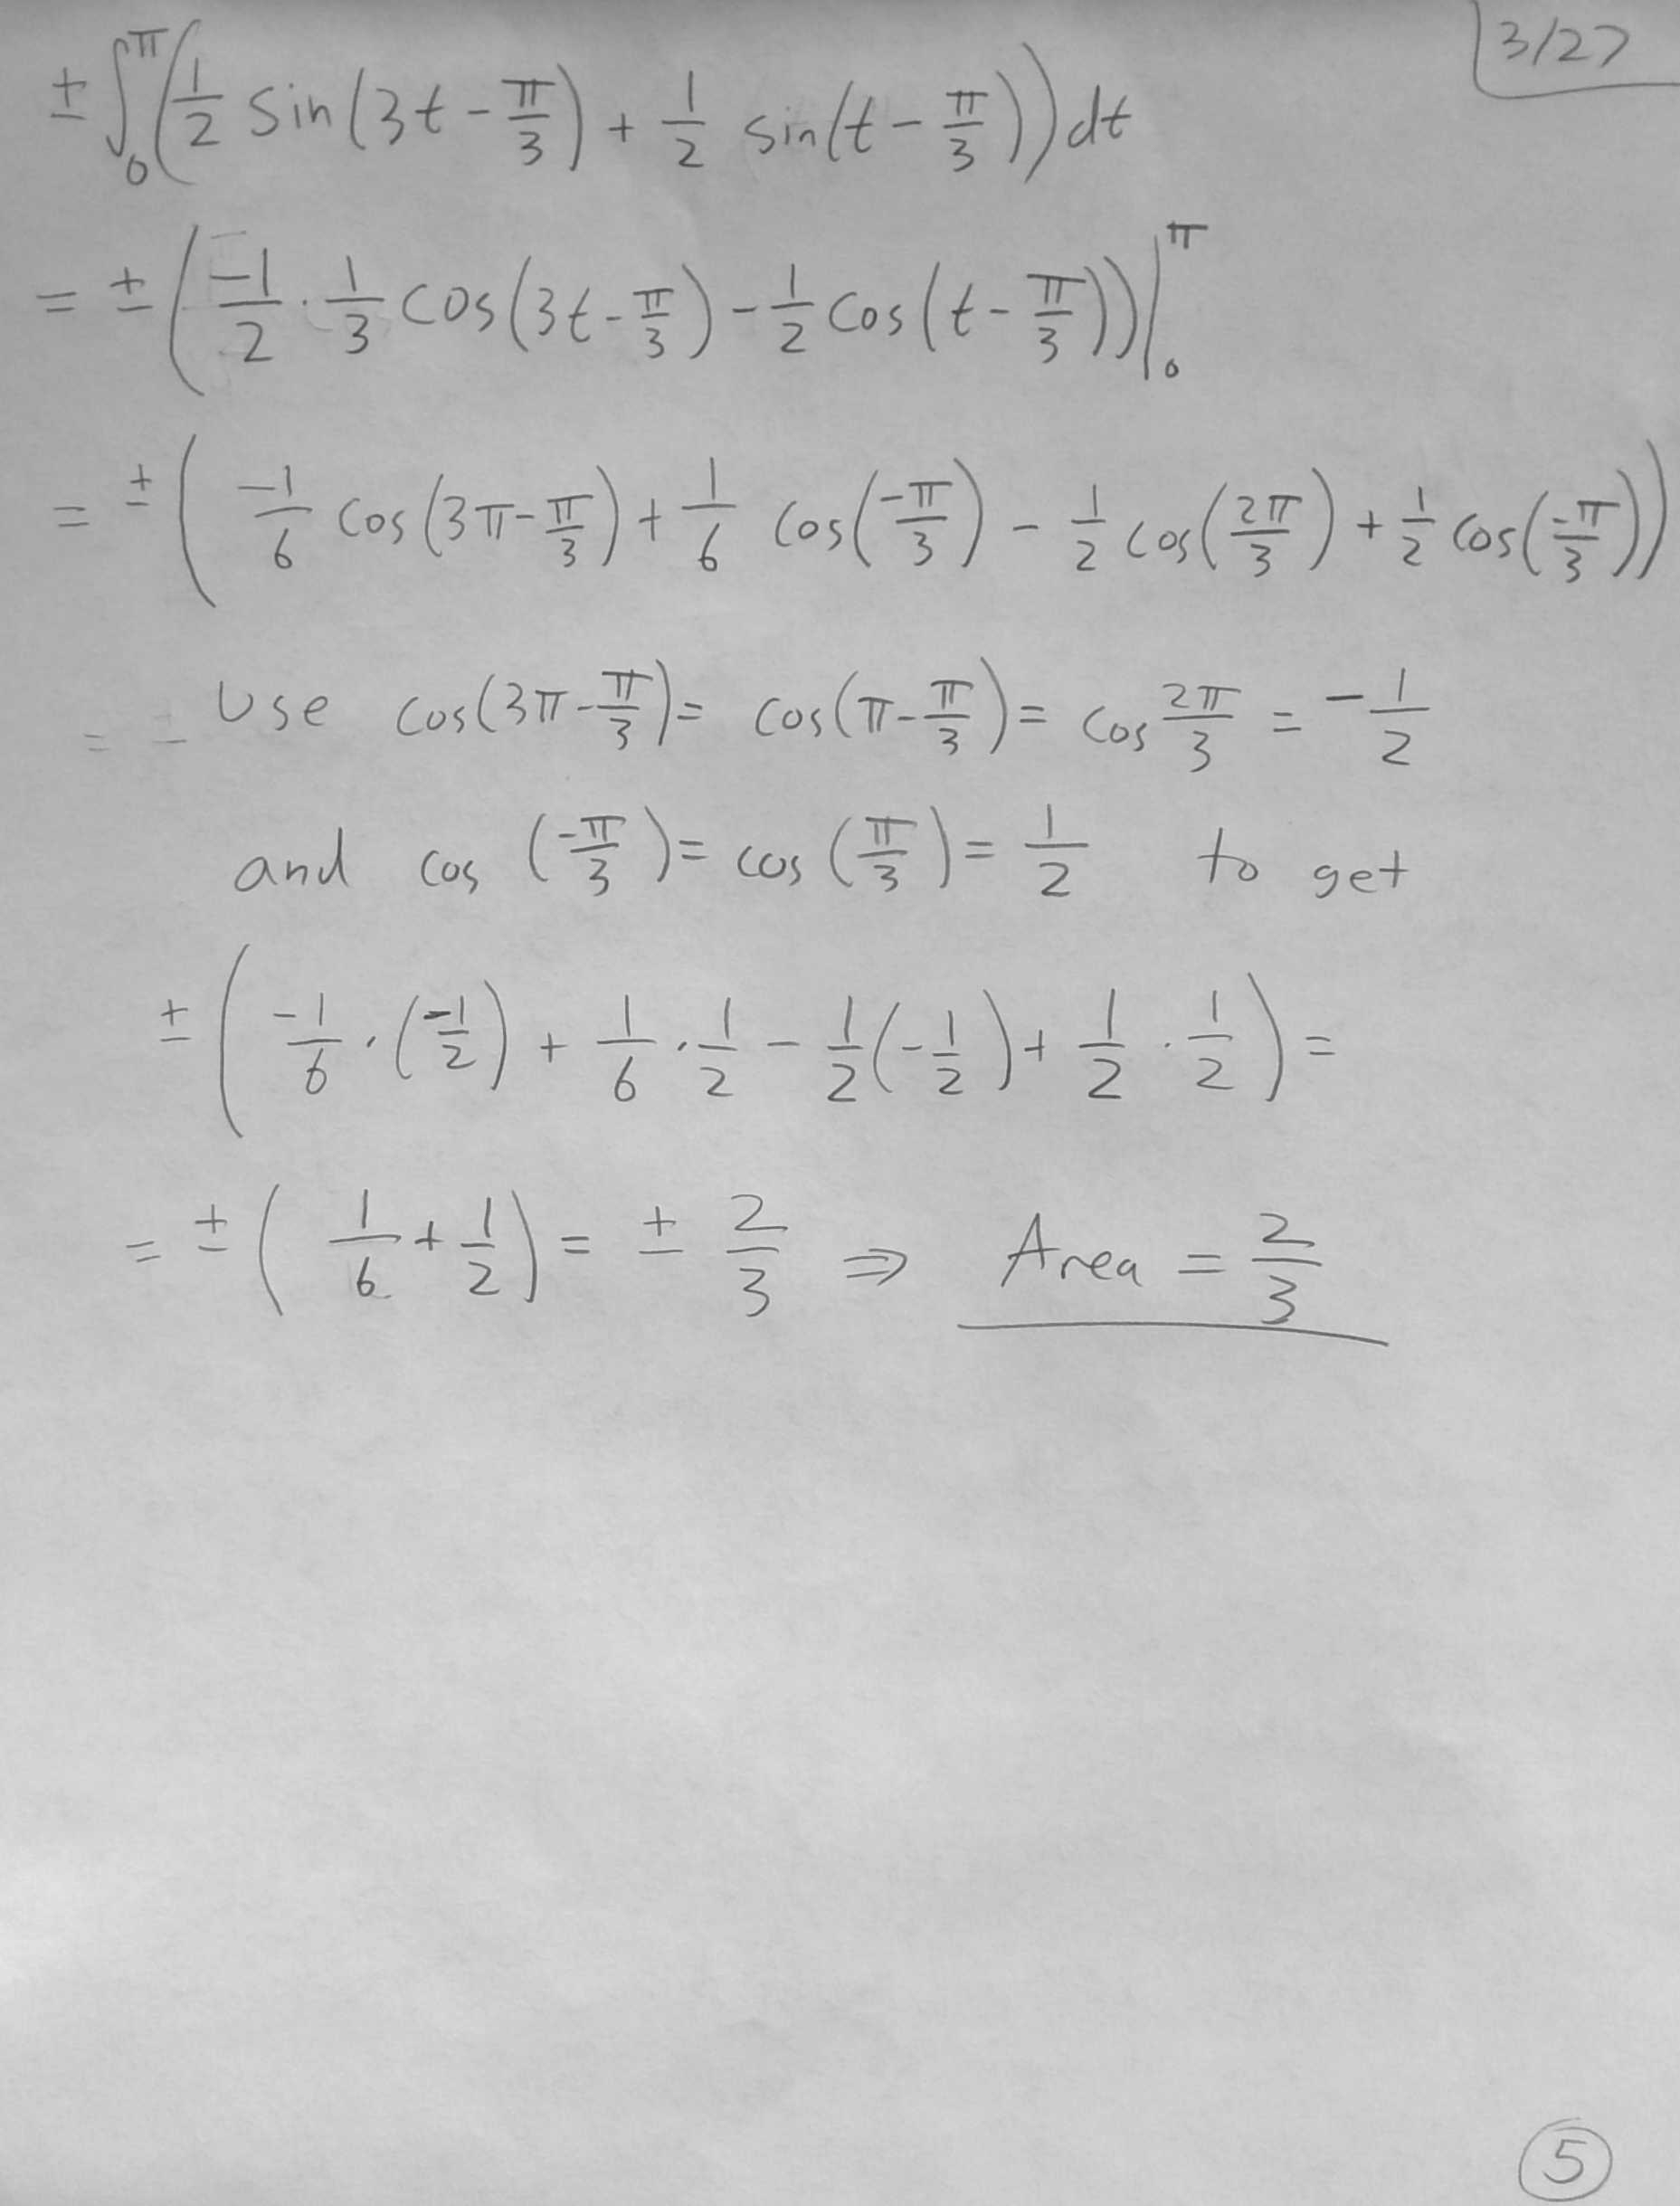 3/27
± ∫₀^π (1/2 sin(3t - π/3) + 1/2 sin(t - π/3)) dt
= ± (-1/2 · 1/3 cos(3t - π/3) - 1/2 cos(t - π/3)) |₀^π
= ± (-1/6 cos(3π - π/3) + 1/6 cos(-π/3) - 1/2 cos(2π/3) + 1/2 cos(-π/3))
Use cos(3π - π/3) = cos(π - π/3) = cos 2π/3 = -1/2
and cos(-π/3) = cos(π/3) = 1/2 to get
± (-1/6 · (-1/2) + 1/6 · 1/2 - 1/2(-1/2) + 1/2 · 1/2) =
= ± (1/6 + 1/2) = ± 2/3 ⇒ Area = 2/3
5